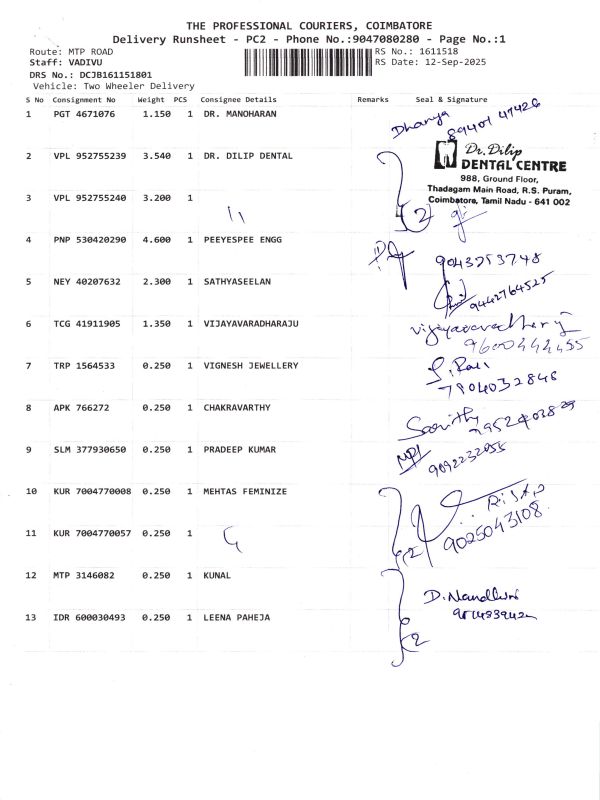 THE PROFESSIONAL COURIERS, COIMBATORE
Delivery Runsheet - PC2 - Phone No.:9047080280 - Page No.:1
Route: MTP ROAD RS No.: 1611518
Staff: VADIVU RS Date: 12-Sep-2025
DRS No.: DCJB161151801
Vehicle: Two Wheeler Delivery
S No Consignment No Weight PCS Consignee Details Remarks Seal & Signature
1 PGT 4671076 1.150 1 DR. MANOHARAN Dhanya
2 VPL 952755239 3.540 1 DR. DILIP DENTAL
Dr. Dilip
DENTAL CENTRE
988, Ground Floor,
Thadagam Main Road, R.S. Puram,
Coimbatore, Tamil Nadu - 641 002
3 VPL 952755240 3.200 1 2
4 PNP 530420290 4.600 1 PEEYESPEE ENGG
9043753748
5 NEY 40207632 2.300 1 SATHYASEELAN 9442764525
6 TCG 41911905 1.350 1 VIJAYAVARADHARAJU
9600442455
7 TRP 1564533 0.250 1 VIGNESH JEWELLERY
7904032848
8 APK 766272 0.250 1 CHAKRAVARTHY
9 SLM 377930650 0.250 1 PRADEEP KUMAR 9092232055
10 KUR 7004770008 0.250 1 MEHTAS FEMINIZE
9025043108
11 KUR 7004770057 0.250 1
12 MTP 3146082 0.250 1 KUNAL
D. Nandhini
13 IDR 600030493 0.250 1 LEENA PAHEJA